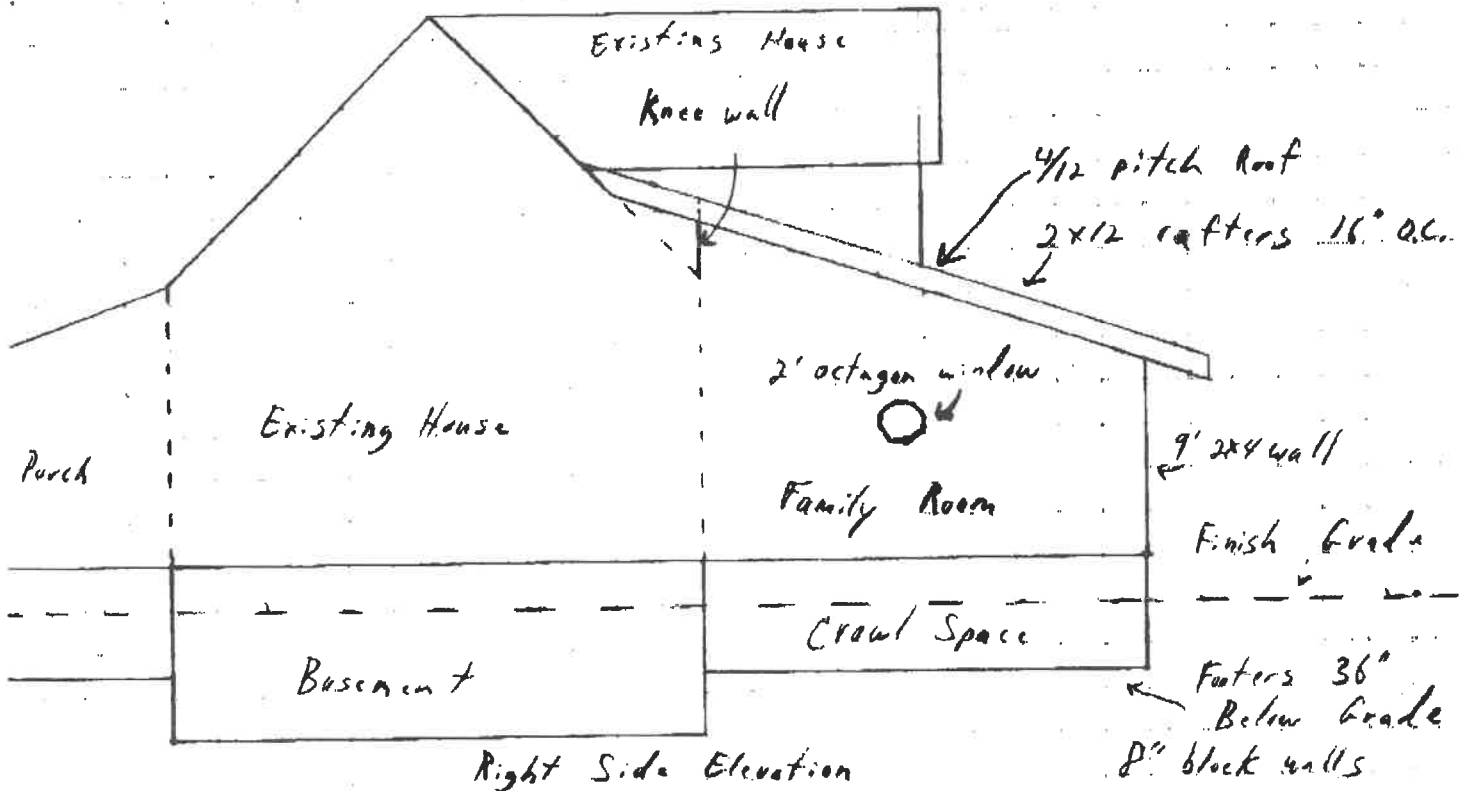 Existing House
Knee wall
4/12 pitch Roof
2x12 rafters 16" O.C.
2' octagon window
Existing House
Porch
9' 2x4 wall
Family Room
Finish Grade
Crawl Space
Basement
Footers 36"
Below Grade
8" block walls
Right Side Elevation